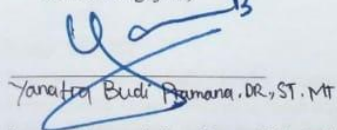 Yanatra Budi Pramana. DR, ST. MT